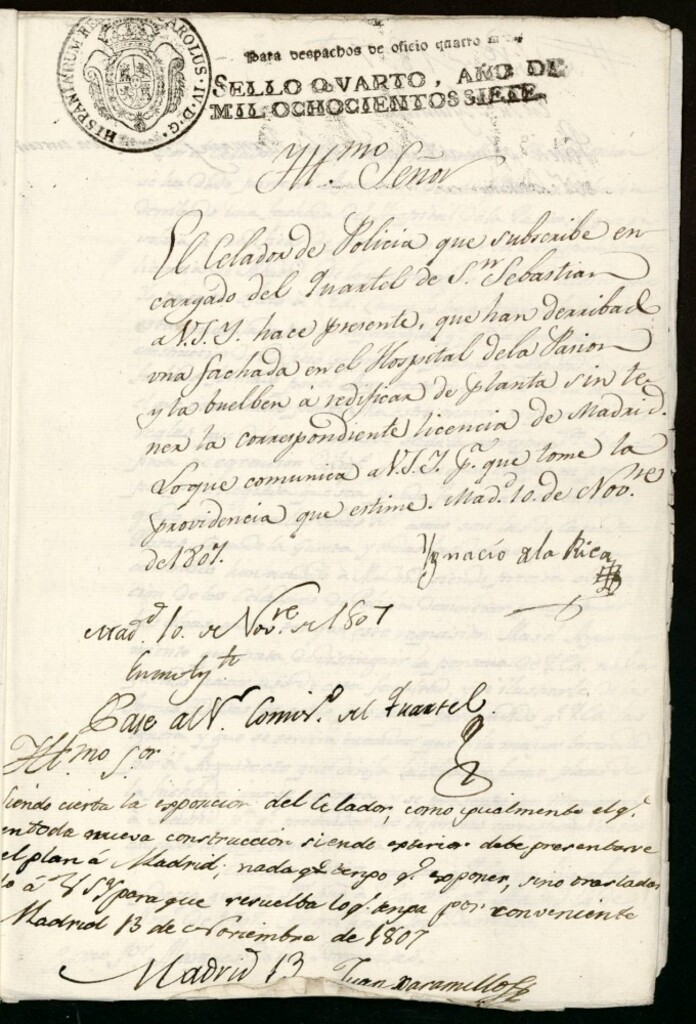 HISPANIARUM REX CAROLUS·IV·D·G·
Para despachos de oficio quatro
SELLO QVARTO, AÑO DE
MIL OCHOCIENTOS SIETE.
Ill.mo Señor
El Celador de Policia que subscribe en
cargado del Quartel de S.n Sebastian
a V.S.Y. hace presente, que han derribad
una fachada en el Hospital dela Pasion
y la buelben á redificar de planta sin te-
ner la correspondiente licencia de Madrid.
Lo que comunica a V.S.Y. p.a que tome la
providencia que estime. Mad.d 10. de Nov.re
de 1807.
Ygnacio dela Rica
Mad.d 10. de Nov.re de 1807
Pase al S.r Comis.o del Quartel.
Ill.mo S.or
Siendo cierta la exposicion del Celador, como igualmente el q.e
en toda nueva construccion siendo exterior debe presentarse
el plan á Madrid; nada q.e tengo q.e exponer, sino trasladar
lo á V S Y para que resuelba lo q.e tenga por conveniente
Madrid 13 de Noviembre de 1807
Juan Jaramillo
Madrid 13